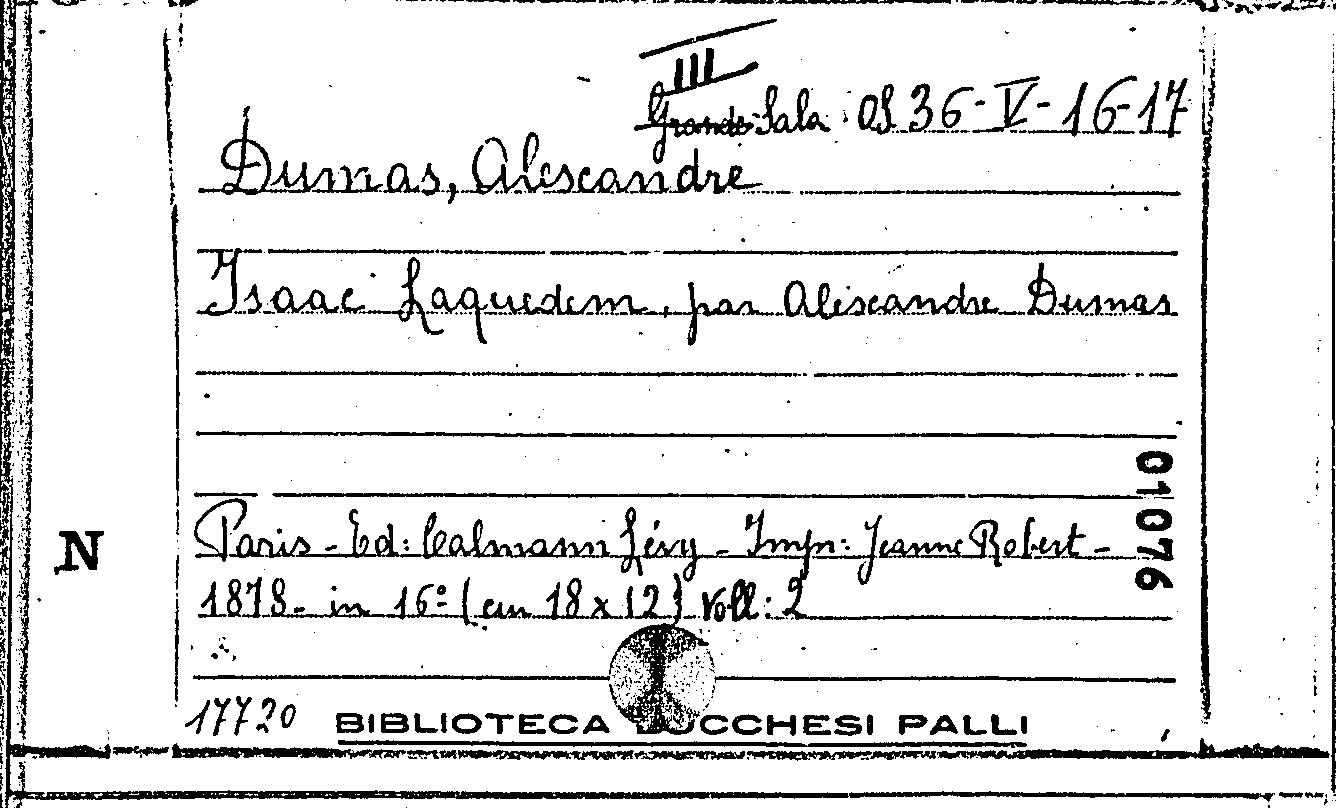 III
Grande Sala OS 36-V-16-17
Dumas, Alexandre
Isaac Laquedem, par Alexandre Dumas
01076
N
Paris - Ed: Calmann Lévy - Imp: Jeanne Robert -
1878 - in 16º (cm 18 x 12) Voll: 2
17720
BIBLIOTECA LUCCHESI PALLI